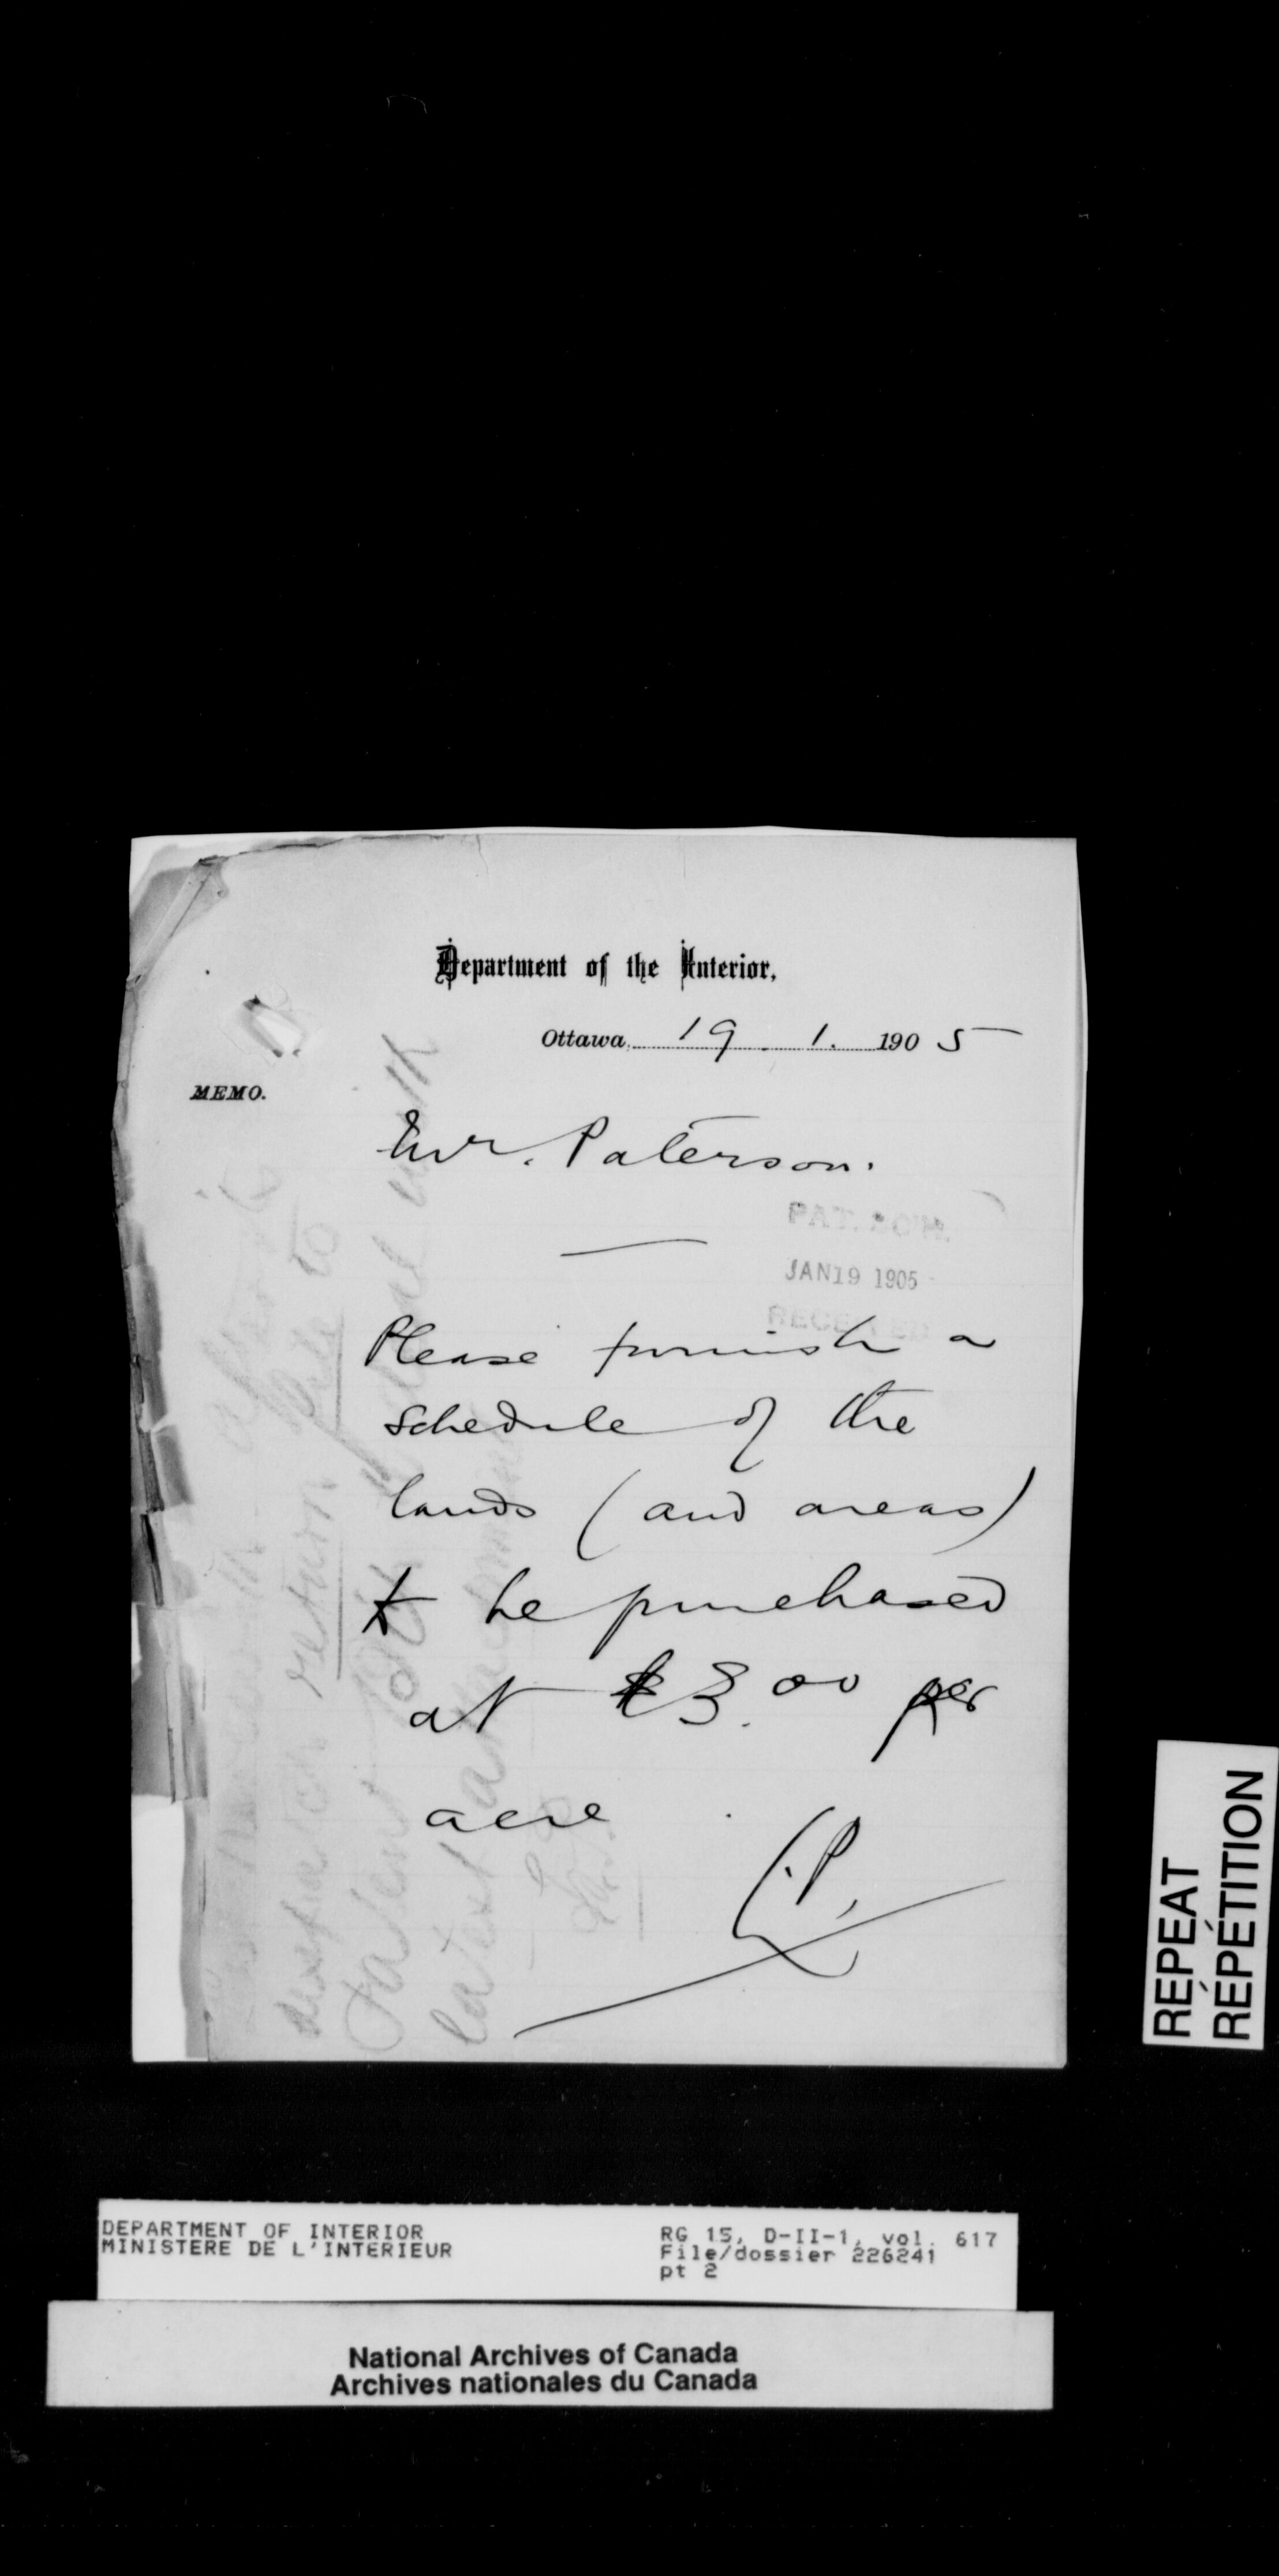 Department of the Interior,
Ottawa, 19. 1. 1905
MEMO.
Mr. Paterson.
PAT.
JAN 19 1905
RECEIVED
Please furnish a
schedule of the
lands (and areas)
to be purchased
at $3.00 per
acre
C.P.
return
Patent
latest
DEPARTMENT OF INTERIOR
MINISTERE DE L'INTERIEUR
RG 15, D-II-1, vol. 617
File/dossier 226241
pt 2
National Archives of Canada
Archives nationales du Canada
REPEAT
RÉPÉTITION